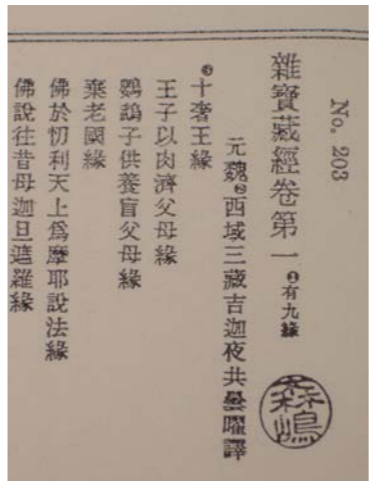 No. 203
雜寶藏經卷第一 ❶有九緣
元魏❷西域三藏吉迦夜共曇曜譯
❸十奢王緣
王子以肉濟父母緣
鸚鵡子供養盲父母緣
棄老國緣
佛於忉利天上爲摩耶說法緣
佛說往昔母迦旦遮羅緣